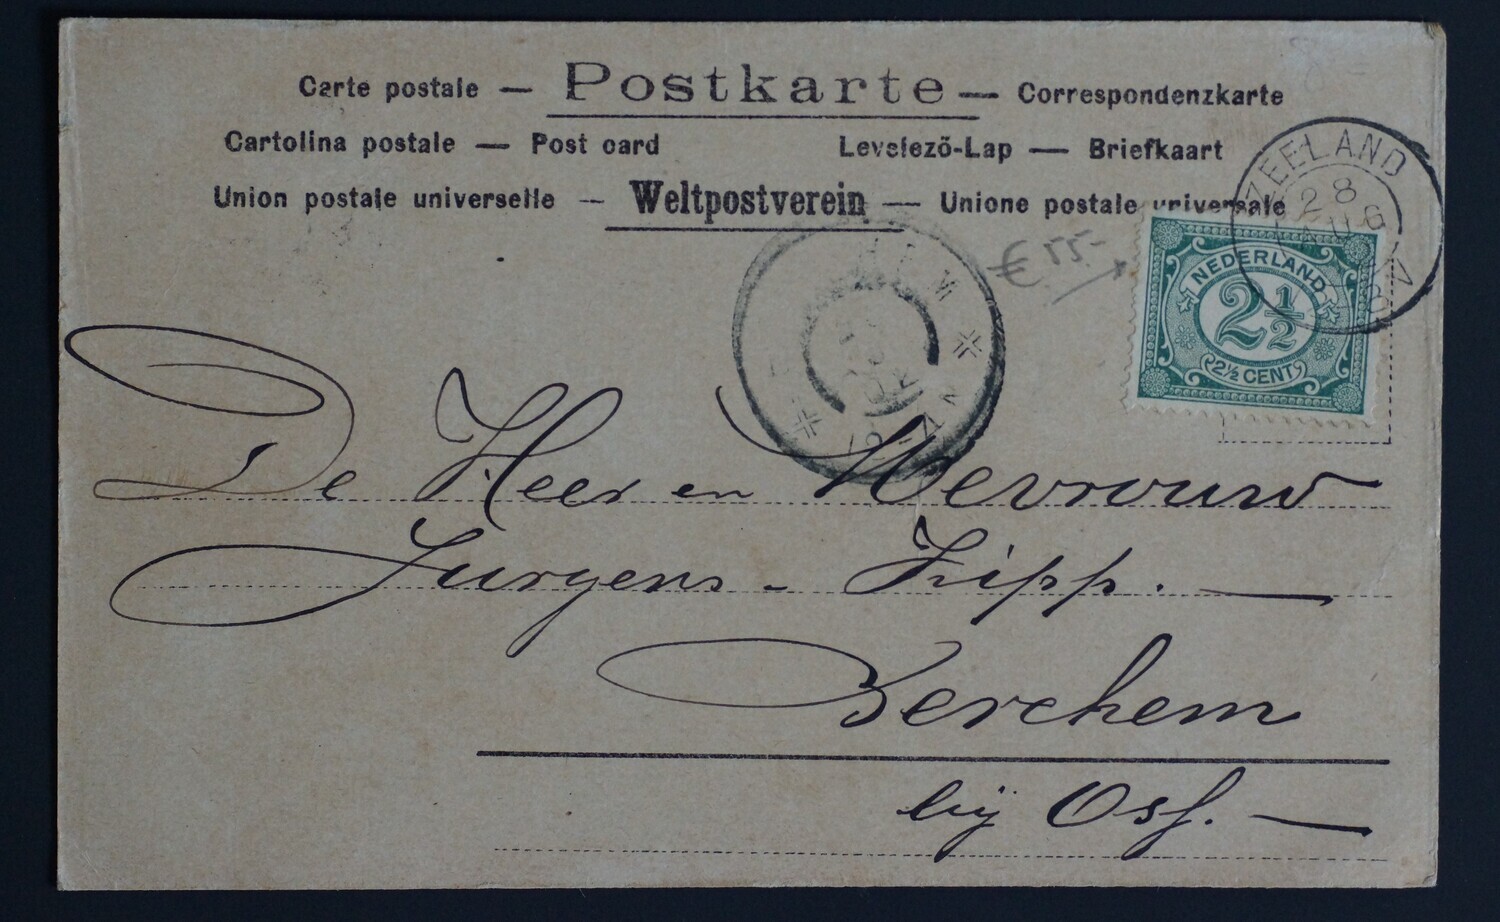 Carte postale — Postkarte — Correspondenzkarte
Cartolina postale — Post card Levelező-Lap — Briefkaart
Union postale universelle — Weltpostverein — Unione postale universale
ZEELAND
28
AUG
€ 55-
NEDERLAND
2½
2½ CENT
De Heer en Mevrouw
Jurgens - Zipp. —
Berchem
bij Oss. —